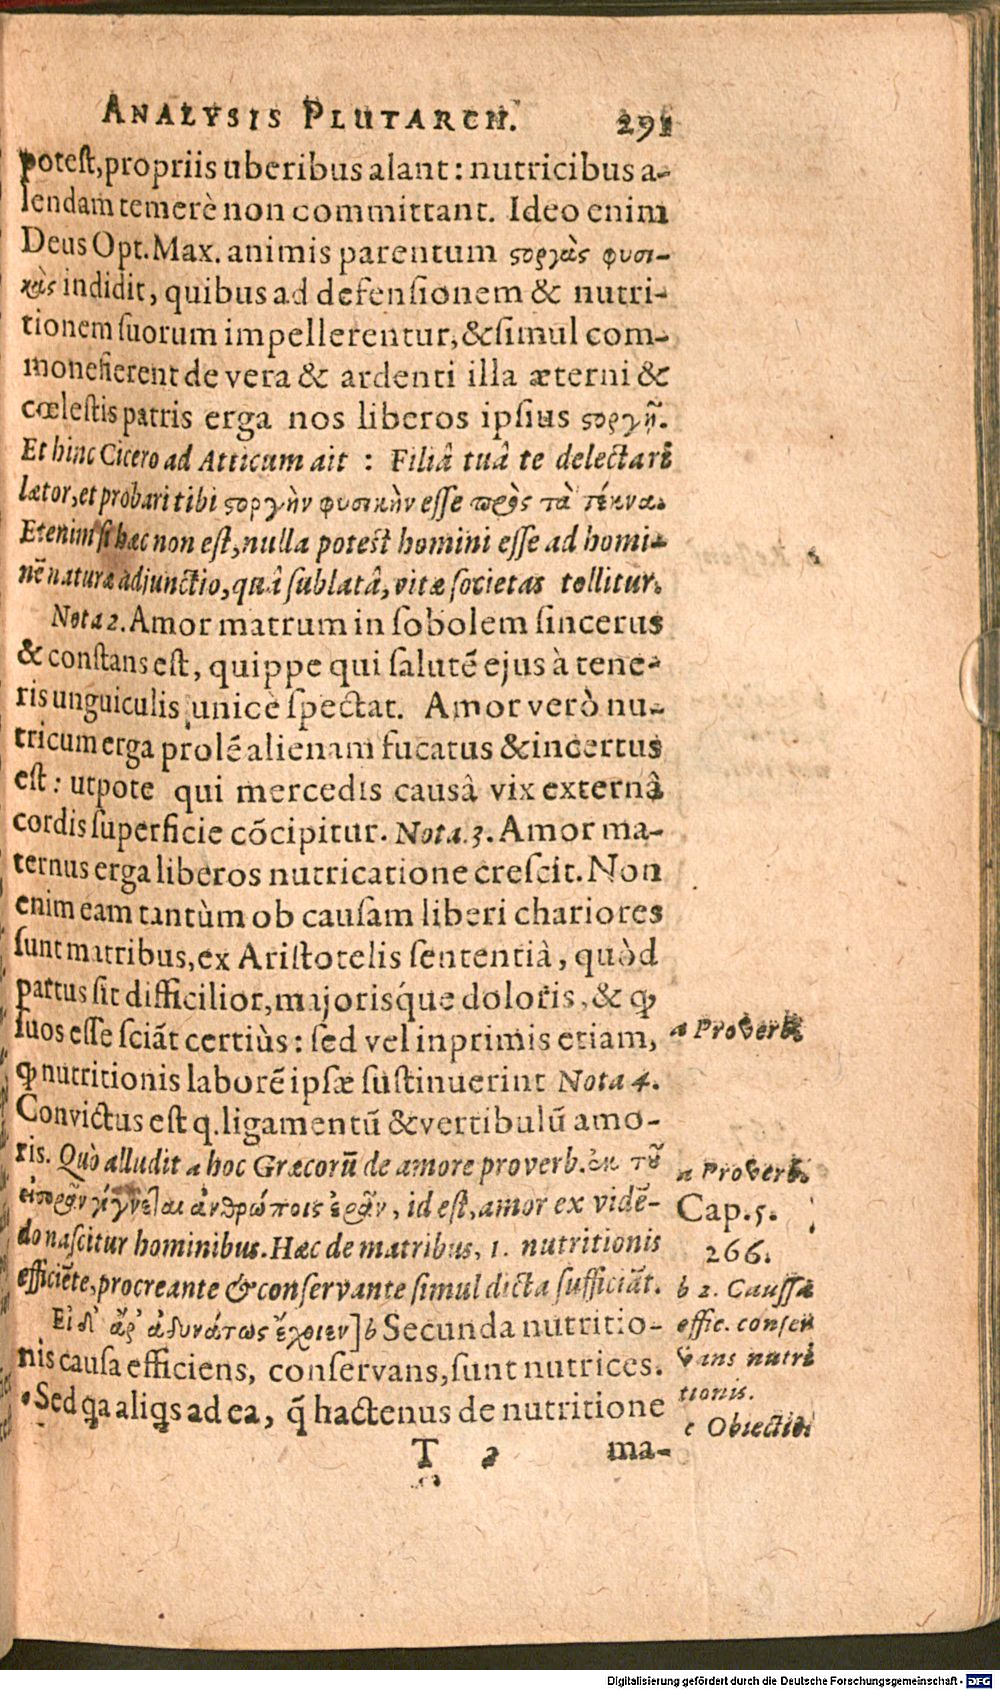 ANALYSIS PLUTARCH. 291
potest, propriis uberibus alant: nutricibus a-
lendam temerè non committant. Ideo enim
Deus Opt. Max. animis parentum ϛοργὰς φυσι-
κὰς indidit, quibus ad defensionem & nutri-
tionem suorum impellerentur, & simul com-
monefierent de vera & ardenti illa æterni &
cœlestis patris erga nos liberos ipsius ϛοργῇ.
Et hinc Cicero ad Atticum ait : Filiâ tuâ te delectari
lætor, et probari tibi ϛοργὴν φυσικὴν esse πρὸς τὰ τέκνα.
Etenim si hæc non est, nulla potest homini esse ad homi-
nē naturæ adjunctio, quâ sublatâ, vitæ societas tollitur.
Nota 2. Amor matrum in sobolem sincerus
& constans est, quippe qui salutē ejus à tene-
ris unguiculis unicè spectat. Amor verò nu-
tricum erga prolē alienam fucatus & incertus
est: utpote qui mercedis causâ vix externâ
cordis superficie cōcipitur. Nota. 3. Amor ma-
ternus erga liberos nutricatione crescit. Non
enim eam tantùm ob causam liberi chariores
sunt matribus, ex Aristotelis sententiâ, quòd
partus sit difficilior, majorisq́ue doloris, & ꝙ
suos esse sciāt certiùs: sed vel inprimis etiam,
ꝙ nutritionis laborē ipsæ sustinuerint Nota 4.
Convictus est q. ligamentū & vertibulū amo-
ris. Quò alludit a hoc Græcorū de amore proverb. ἐκ τοῦ
εἰσορᾷν γίγνεται ἀνθρώποις ἐρᾷν, id est, amor ex vidē-
do nascitur hominibus. Hæc de matribus, 1. nutritionis
efficiēte, procreante & conservante simul dicta sufficiāt.
Εἰ δ' ἄρ' ἀδυνάτως ἔχοιεν] b Secunda nutritio-
nis causa efficiens, conservans, sunt nutrices.
c Sed qa aliqs ad ea, q̄ hactenus de nutritione
T 2 ma-
a Proverb.
a Proverb.
Cap. 5.
266.
b 2. Caussa
effic. conser
vans nutri
tionis.
c Obiectio.
Digitalisierung gefördert durch die Deutsche Forschungsgemeinschaft - DFG